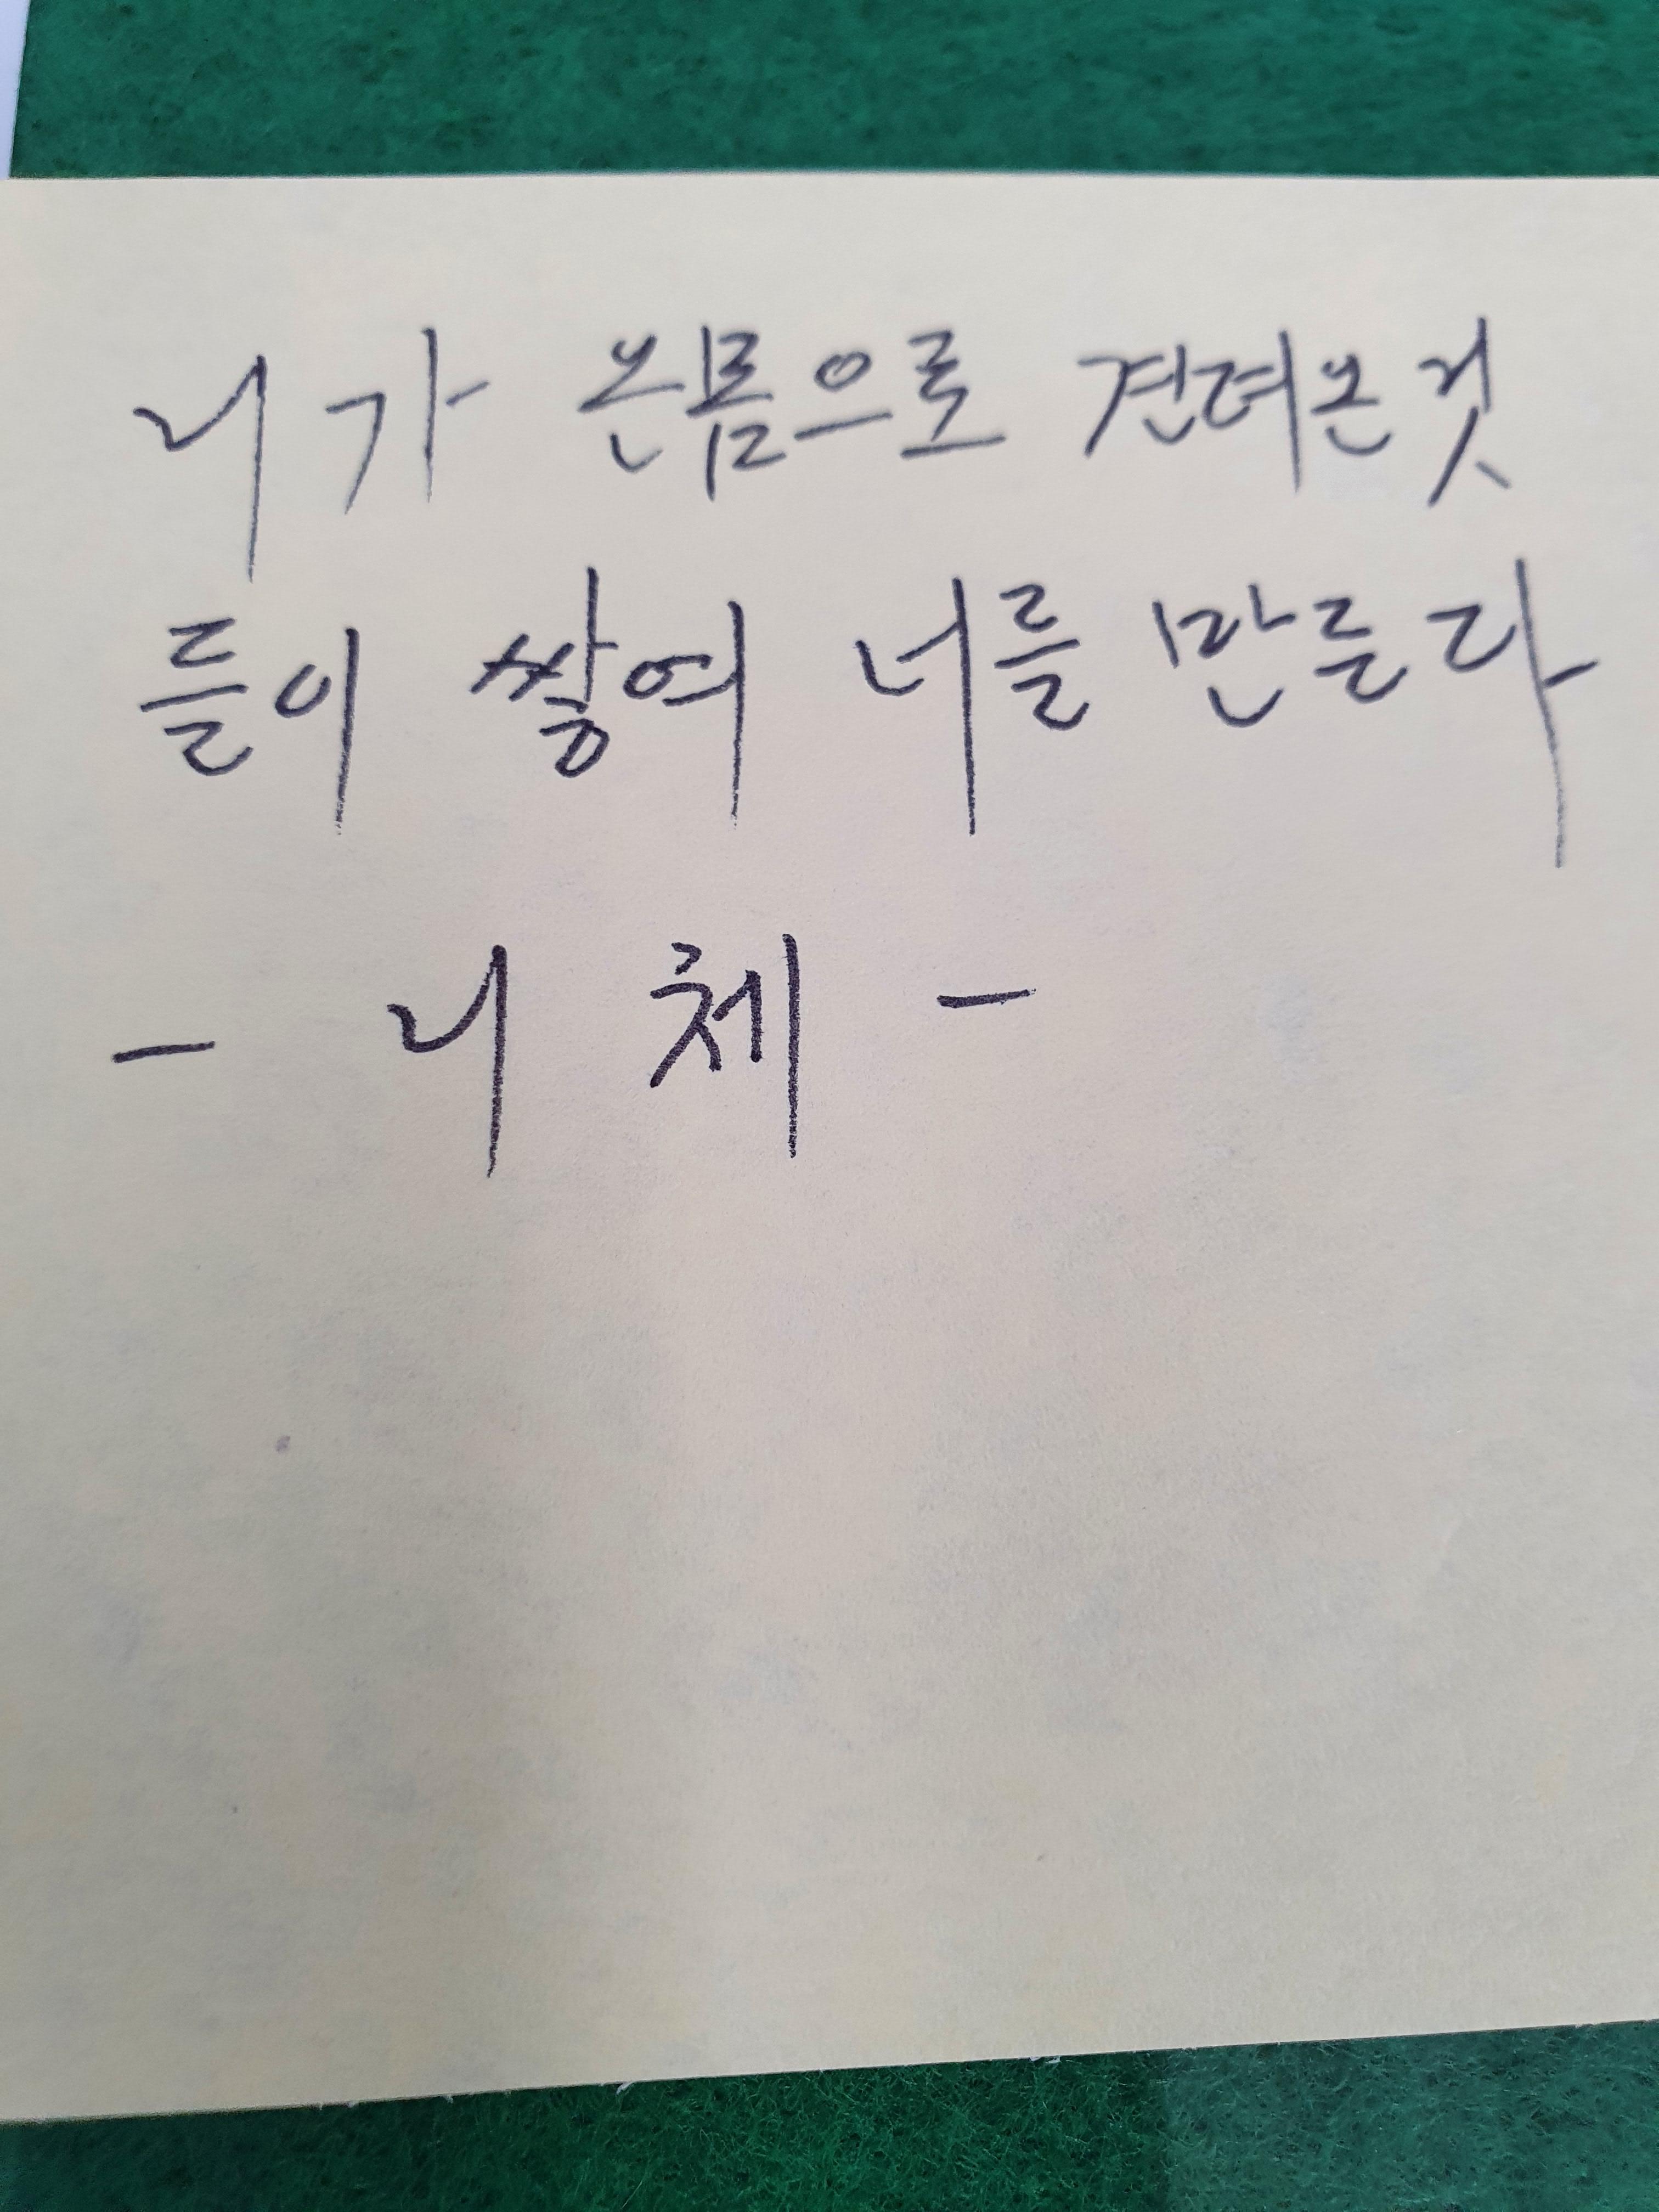 니가 온몸으로 견뎌온것
들이 쌓여 너를 만든다
- 니체 -